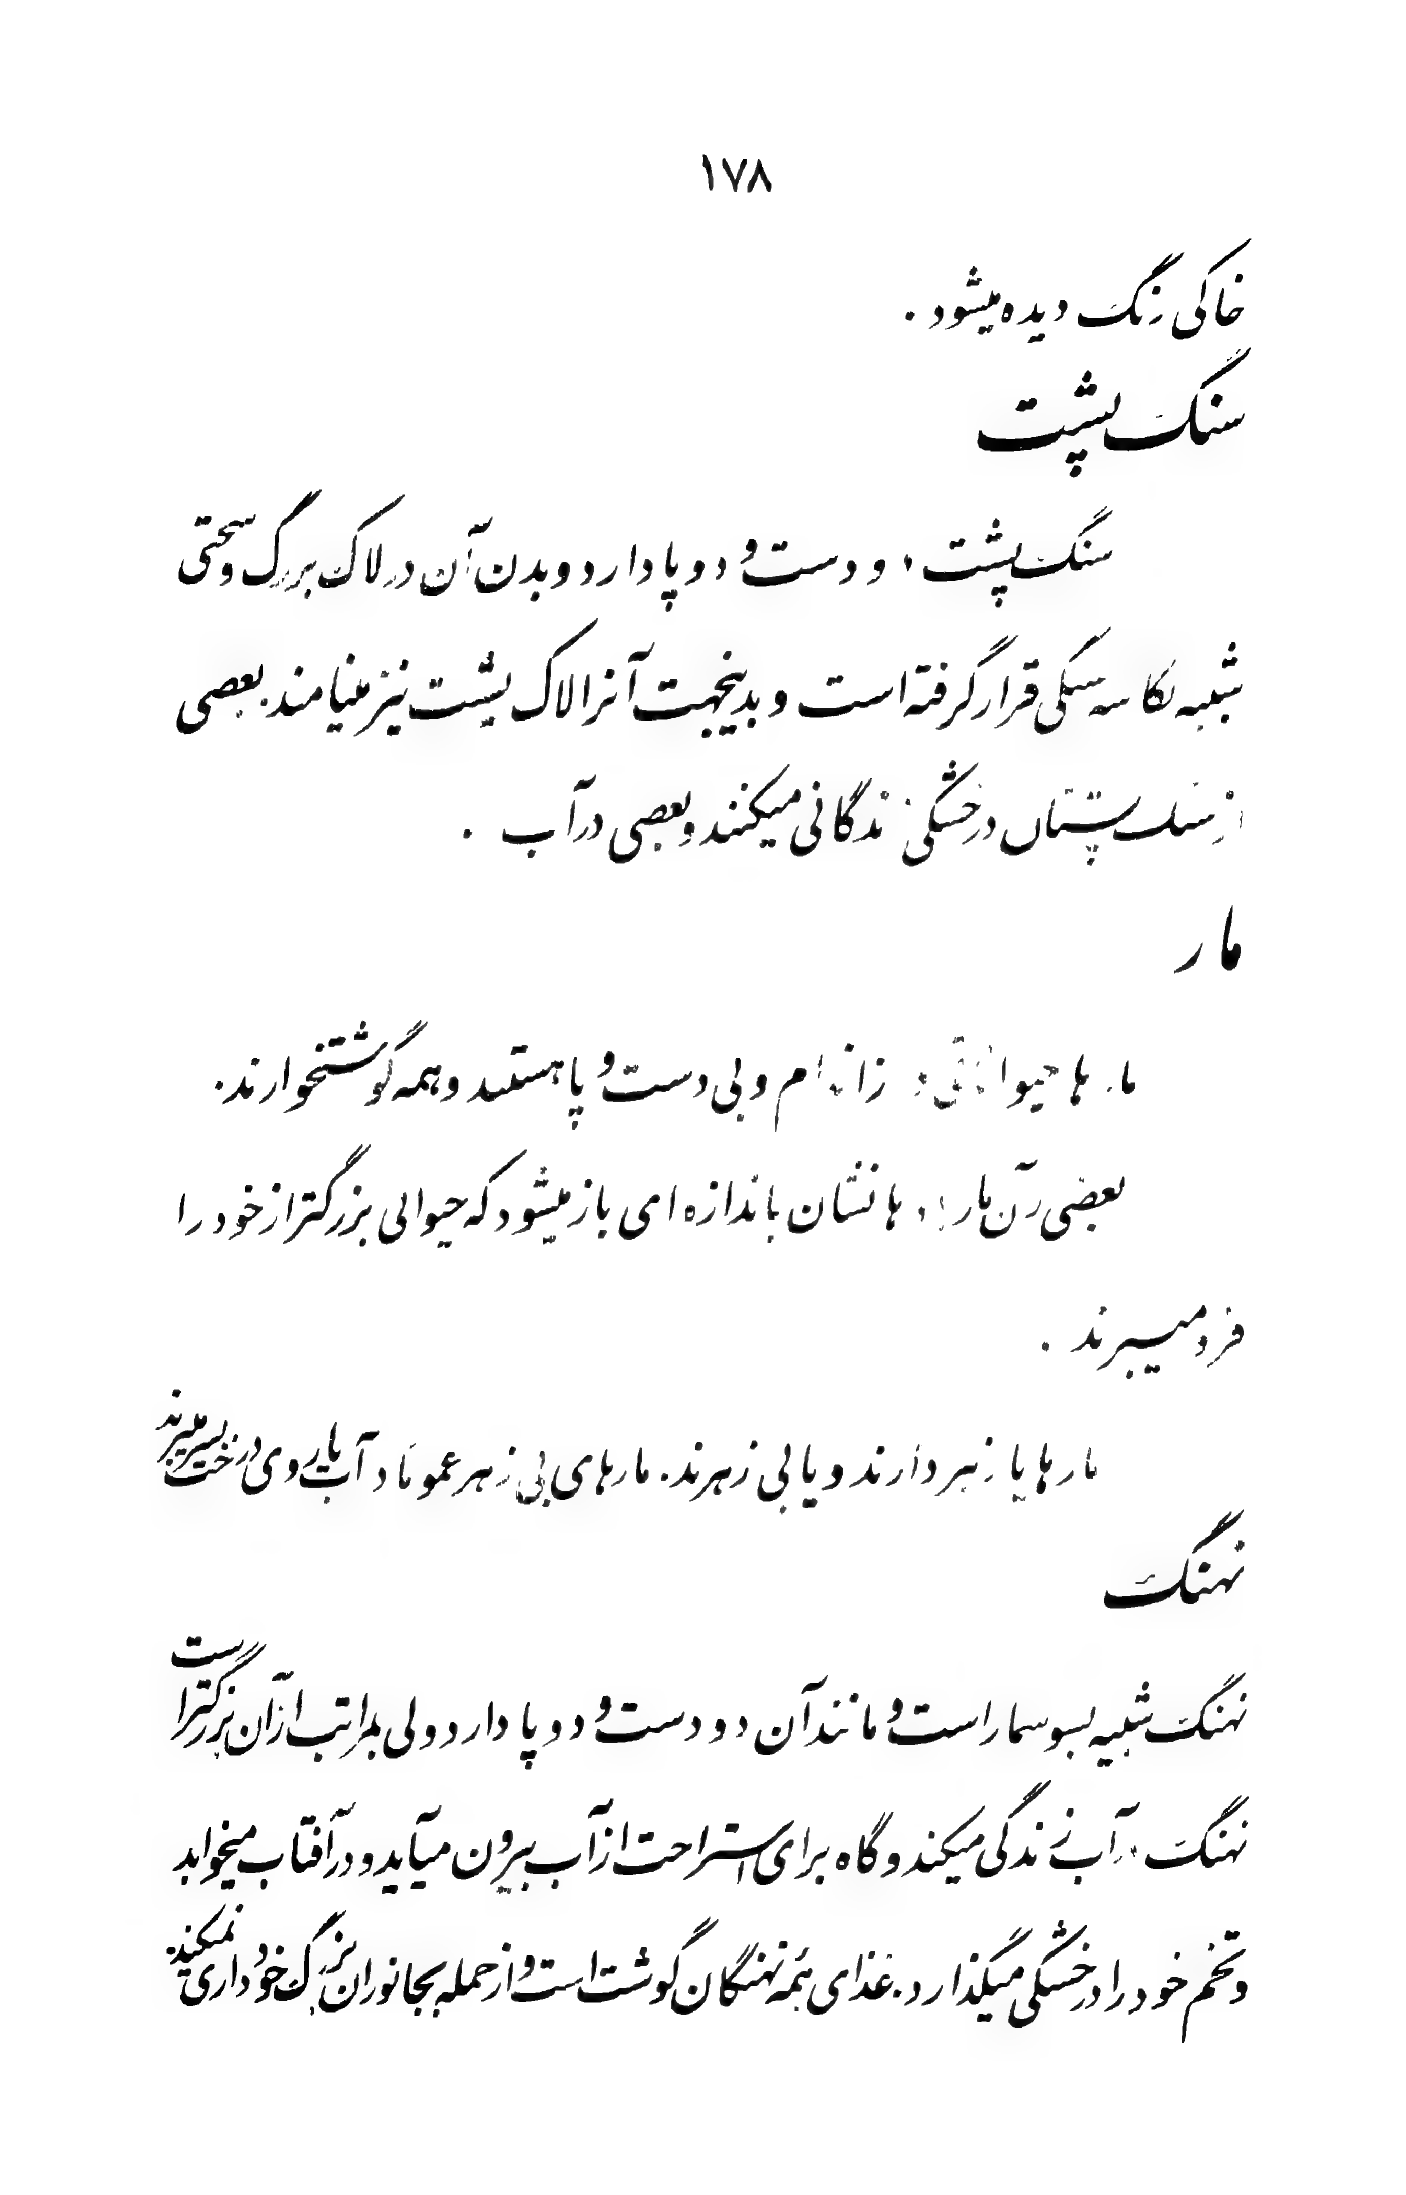 ۱۷۸
خاکی رنگ دیده میشود .
سنگ پشت
سنگ پشت دو دست و دو پا دارد و بدن آن در لاک بزرگ و سختی
شبیه بکاسه سنگی قرار گرفته است و بدینجهت آنرا لاک پشت نیز مینامند. بعضی
از سنگ پشتان در خشکی زندگانی میکنند و بعضی در آب .
مار
مارها حیواناتی دراز اندام و بی دست و پا هستند و همه گوشتخوارند.
بعضی از آن مارها دهانشان باندازه ای باز میشود که حیوانی بزرگتر از خود را
فرو میبرند .
مارها یا زهر دارند و یا بی زهرند. مارهای بی زهر عموما در آب یا روی درخت بسر میبرند
نهنگ
نهنگ شبیه بسوسمار است و مانند آن دو دست و دو پا دارد ولی بمراتب از آن بزرگتر است
نهنگ در آب زندگی میکند و گاه برای استراحت از آب بیرون میآید و در آفتاب میخوابد
و تخم خود را در خشکی میگذارد. غذای همه نهنگان گوشت است و از حمله بجانوران بزرگ خودداری نمیکنند.